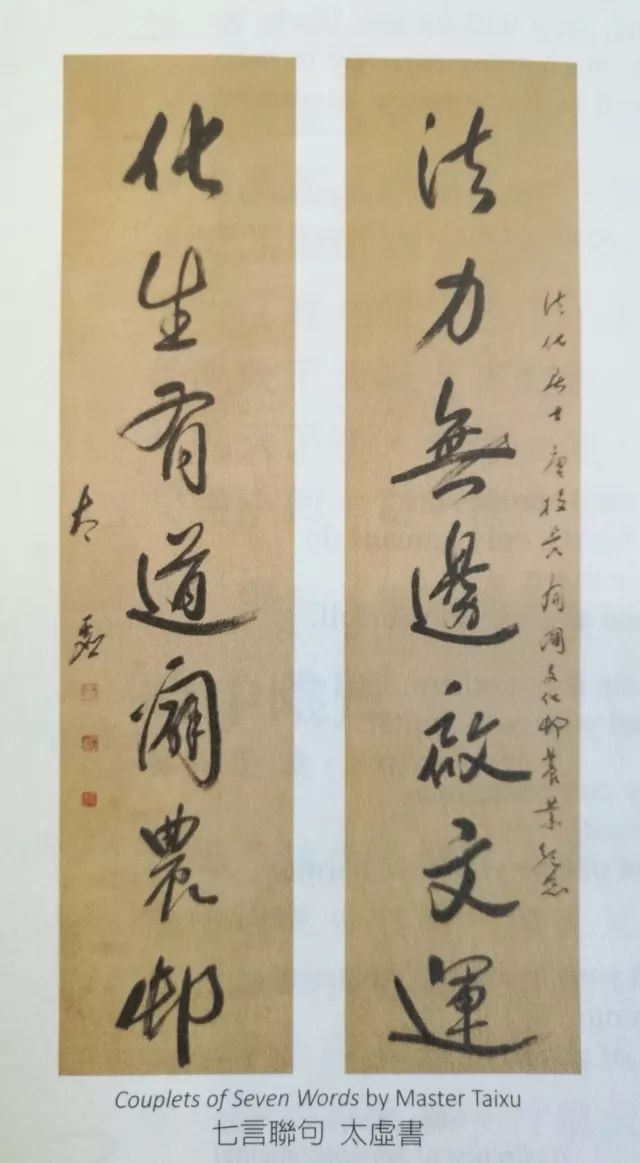 法化居士唐校長闢文化邨農業紀念
法力無邊啟文運
化生有道闢農邨
太虛
Couplets of Seven Words by Master Taixu
七言聯句 太虛書